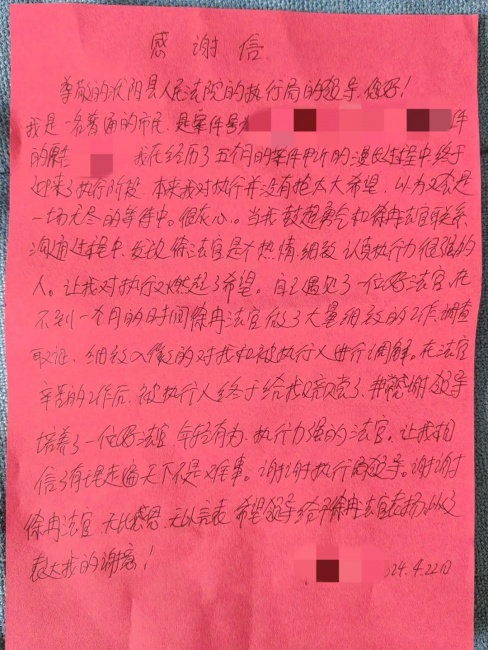 感谢信
尊敬的沃阴县人民法院的执行局的领导,您好!
我是一名普通的市民,是案件号 件
的 我在经历了五个月的案件 的漫长过程中终于
迎来了执行阶段。本来我对执行并没有抱太大希望,以为又会是
一场无尽的等待中。 当我鼓起勇气和徐冉法官联系
沟通过程中,发现徐法官是个热情、细致、认真执行力很强的
人。让我对执行又燃起了希望。自己遇见了一位好法官,在
不到一个月的时间徐冉法官做了大量细致的工作,调查
取证,细致入微的对我和被执行人进行调解。在法官
辛苦的工作后,被执行人终于给我 了,非常感谢领导
培养了一位好法官,年轻有为,执行力强的法官。让我相
信了有理走遍天下不是难事。谢谢执行局领导。谢谢
徐冉法官,无以感恩,无以 希望领导给予徐冉法官表扬,以
表达我的谢意!
24.4.22日